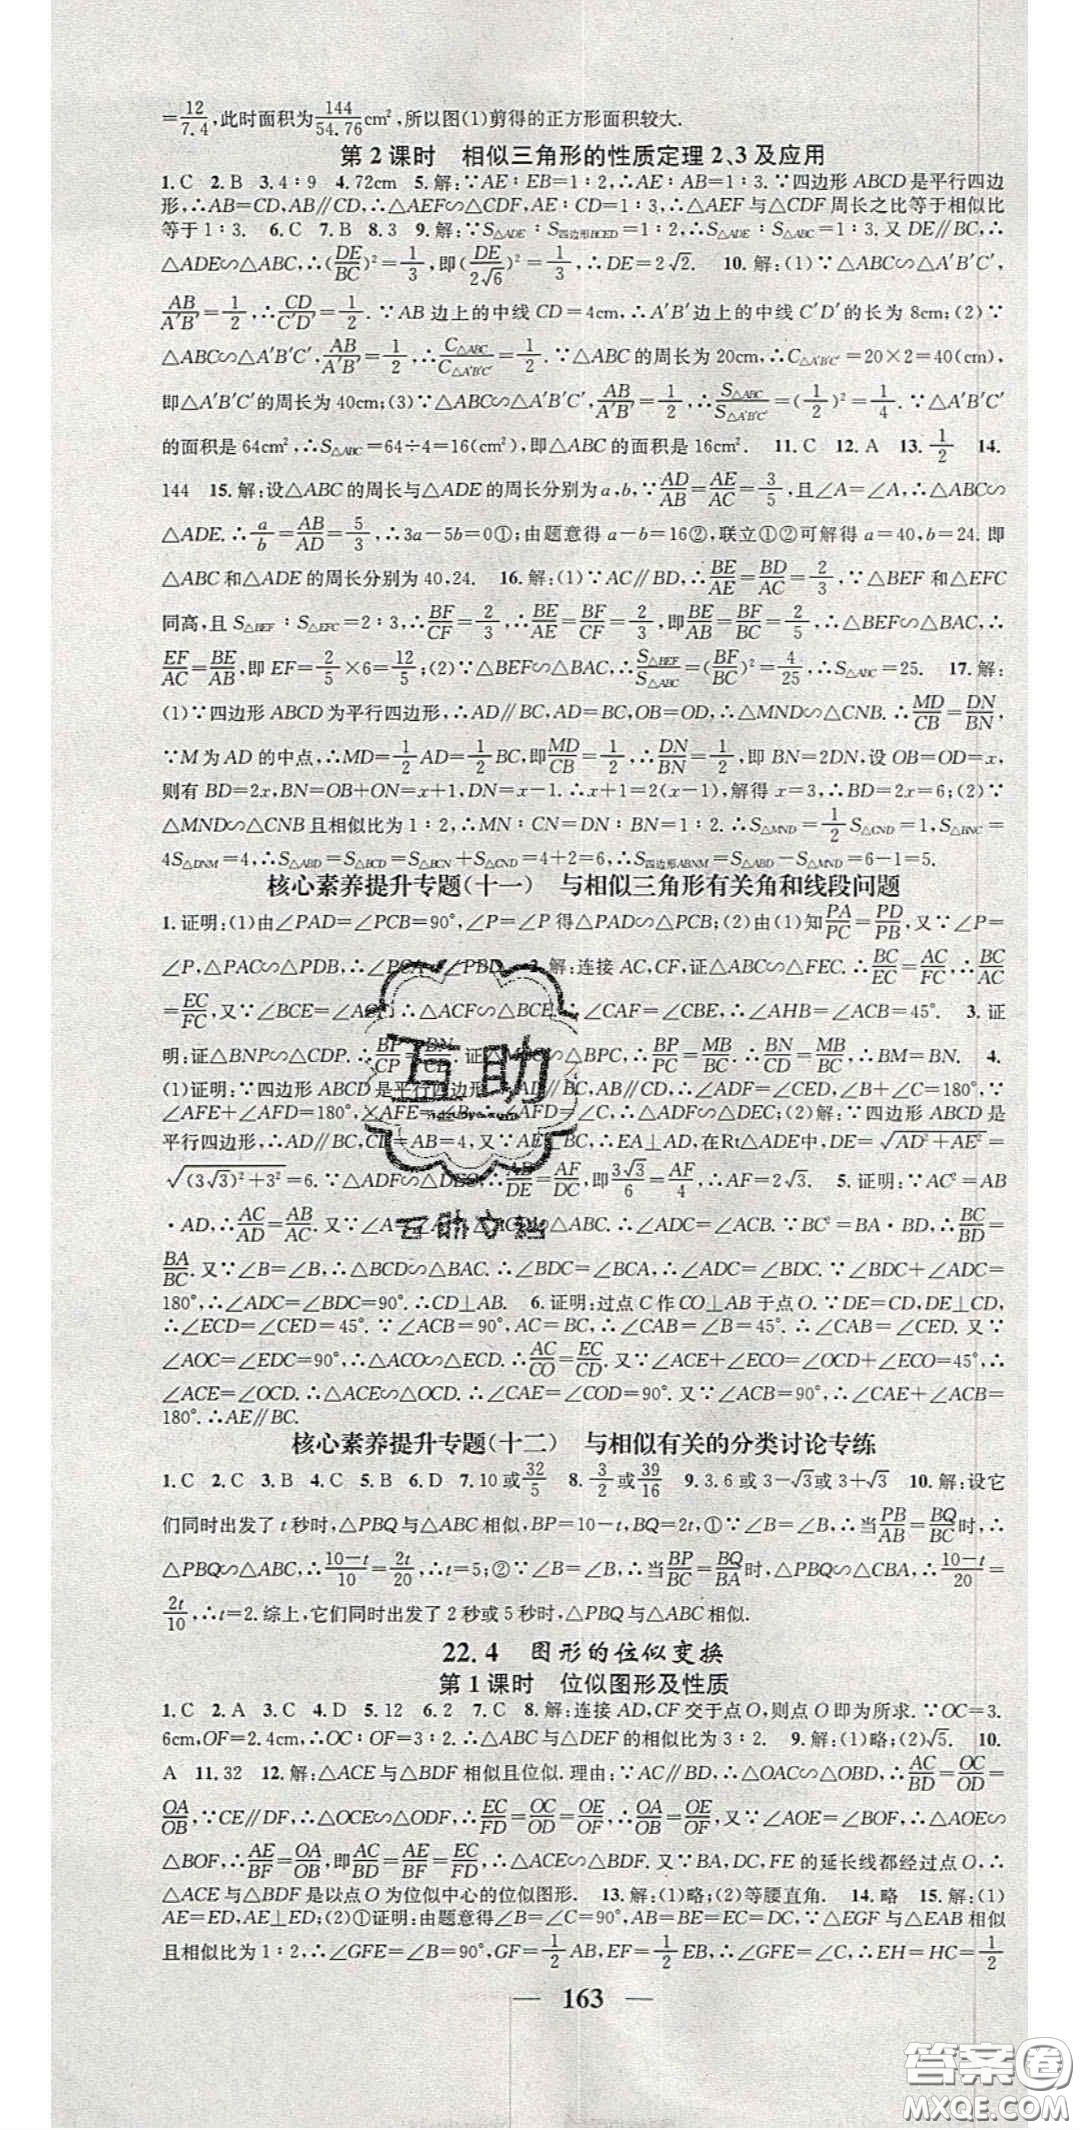 =12/7.4,此时面积为144/54.76cm²,所以图(1)剪得的正方形面积较大.
第2课时　相似三角形的性质定理2、3及应用
1.C　2.B　3.4∶9　4.72cm　5.解:∵AE∶EB=1∶2,∴AE∶AB=1∶3.∵四边形ABCD是平行四边
形,∴AB=CD,AB∥CD,∴△AEF∽△CDF,AE∶CD=1∶3,∴△AEF与△CDF周长之比等于相似比
等于1∶3.　6.C　7.B　8.3　9.解:∵S△ADE∶S四边形BCED=1∶2,∴S△ADE∶S△ABC=1∶3.又DE∥BC,∴
△ADE∽△ABC,∴(DE/BC)²=1/3,即(DE/2√6)²=1/3,∴DE=2√2.　10.解:(1)∵△ABC∽△A′B′C′,
AB/A′B′=1/2,∴CD/C′D′=1/2.∵AB边上的中线CD=4cm,∴A′B′边上的中线C′D′的长为8cm;(2)∵
△ABC∽△A′B′C′,AB/A′B′=1/2,∴C△ABC/C△A′B′C′=1/2.∵△ABC的周长为20cm,∴C△A′B′C′=20×2=40(cm),
即△A′B′C′的周长为40cm;(3)∵△ABC∽△A′B′C′,AB/A′B′=1/2,∴S△ABC/S△A′B′C′=(1/2)²=1/4.∵△A′B′C′
的面积是64cm²,∴S△ABC=64÷4=16(cm²),即△ABC的面积是16cm².　11.C　12.A　13.1/2　14.
144　15.解:设△ABC的周长与△ADE的周长分别为a,b,∵AD/AB=AE/AC=3/5,且∠A=∠A,∴△ABC∽
△ADE.∴a/b=AB/AD=5/3,∴3a-5b=0①;由题意得a-b=16②,联立①②可解得a=40,b=24.即
△ABC和△ADE的周长分别为40,24.　16.解:(1)∵AC∥BD,∴BE/AE=BD/AC=2/3,∵△BEF和△EFC
同高,且S△BEF∶S△EFC=2∶3,∴BF/CF=2/3,∴BE/AE=BF/CF=2/3,即BE/AB=BF/BC=2/5,∴△BEF∽△BAC,∴
EF/AC=BE/AB,即EF=2/5×6=12/5;(2)∵△BEF∽△BAC,∴S△BEF/S△ABC=(BF/BC)²=4/25,∴S△ABC=25.　17.解:
(1)∵四边形ABCD为平行四边形,∴AD∥BC,AD=BC,OB=OD,∴△MND∽△CNB.∴MD/CB=DN/BN,
∵M为AD的中点,∴MD=1/2AD=1/2BC,即MD/CB=1/2,∴DN/BN=1/2,即BN=2DN,设OB=OD=x,
则有BD=2x,BN=OB+ON=x+1,DN=x-1.∴x+1=2(x-1),解得x=3,∴BD=2x=6;(2)∵
△MND∽△CNB且相似比为1∶2,∴MN∶CN=DN∶BN=1∶2.∴S△MND=1/2S△CND=1,S△BNC=
4S△DNM=4,∴S△ABD=S△BCD=S△BCN+S△CND=4+2=6,∴S四边形ABNM=S△ABD-S△MND=6-1=5.
核心素养提升专题(十一)　与相似三角形有关角和线段问题
1.证明:(1)由∠PAD=∠PCB=90°,∠P=∠P得△PAD∽△PCB;(2)由(1)知PA/PC=PD/PB,又∵∠P=
∠P,△PAC∽△PDB,∴∠PCA=∠PBD.　2.解:连接AC,CF,证△ABC∽△FEC.∴BC/EC=AC/FC,∴BC/AC
=EC/FC,又∵∠BCE=∠ACF,∴△ACF∽△BCE,∴∠CAF=∠CBE,∴∠AHB=∠ACB=45°.　3.证
明:证△BNP∽△CDP.∴BP/CP=BN/CD.证△∽△BPC,∴BP/PC=MB/BC.∴BN/CD=MB/BC,∴BM=BN.　4.
(1)证明:∵四边形ABCD是平行四边形,∴AD∥BC,AB∥CD,∴∠ADF=∠CED,∠B+∠C=180°,∵
∠AFE+∠AFD=180°,∠AFE=∠B,∴∠AFD=∠C,∴△ADF∽△DEC;(2)解:∵四边形ABCD是
平行四边形,∴AD∥BC,CD=AB=4,又∵AE⊥BC,∴EA⊥AD,在Rt△ADE中,DE=√(AD²+AE²)=
√((3√3)²+3²)=6.∵△ADF∽△DEC,∴AD/DE=AF/DC,即3√3/6=AF/4,∴AF=2√3.　5.证明:∵AC²=AB
·AD,∴AC/AD=AB/AC.又∵∠A=∠A,∴△∽△ABC.∴∠ADC=∠ACB.∵BC²=BA·BD,∴BC/BD=
BA/BC.又∵∠B=∠B,∴△BCD∽△BAC.∴∠BDC=∠BCA,∴∠ADC=∠BDC.∵∠BDC+∠ADC=
180°,∴∠ADC=∠BDC=90°.∴CD⊥AB.　6.证明:过点C作CO⊥AB于点O.∵DE=CD,DE⊥CD,
∴∠ECD=∠CED=45°.∵∠ACB=90°,AC=BC,∴∠CAB=∠B=45°.∴∠CAB=∠CED.又∵
∠AOC=∠EDC=90°,∴△ACO∽△ECD.∴AC/CO=EC/CD.又∵∠ACE+∠ECO=∠OCD+∠ECO=45°,∴
∠ACE=∠OCD.∴△ACE∽△OCD.∴∠CAE=∠COD=90°.又∵∠ACB=90°,∴∠CAE+∠ACB=
180°.∴AE∥BC.
核心素养提升专题(十二)　与相似有关的分类讨论专练
1.C　2.C　3.B　4.C　5.B　6.D　7.10或32/5　8.3/2或39/16　9.3.6或3-√3或3+√3　10.解:设它
们同时出发了t秒时,△PBQ与△ABC相似,BP=10-t,BQ=2t,①∵∠B=∠B,∴当PB/AB=BQ/BC时,∴
△PBQ∽△ABC,∴10-t/10=2t/20,∴t=5;②∵∠B=∠B,∴当BP/BC=BQ/BA时,△PBQ∽△CBA,∴10-t/20=
2t/10,∴t=2.综上,它们同时出发了2秒或5秒时,△PBQ与△ABC相似.
22.4　图形的位似变换
第1课时　位似图形及性质
1.C　2.A　3.C　4.D　5.12　6.2　7.C　8.解:连接AD,CF交于点O,则点O即为所求.∵OC=3.
6cm,OF=2.4cm,∴OC∶OF=3∶2,∴△ABC与△DEF的相似比为3∶2.　9.解:(1)略;(2)√5.　10.
A　11.32　12.解:△ACE与△BDF相似且位似.理由:∵AC∥BD,∴△OAC∽△OBD,∴AC/BD=OC/OD=
OA/OB,∵CE∥DF,∴△OCE∽△ODF,∴EC/FD=OC/OD=OE/OF,∴OA/OB=OE/OF,又∵∠AOE=∠BOF,∴△AOE∽
△BOF,∴AE/BF=OA/OB,即AC/BD=AE/BF=EC/FD,∴△ACE∽△BDF.又∵BA,DC,FE的延长线都经过点O,∴
△ACE与△BDF是以点O为位似中心的位似图形.　13.解:(1)略;(2)等腰直角.　14.略　15.解:(1)
AE=ED,AE⊥ED;(2)①证明:由题意得∠B=∠C=90°,AB=BE=EC=DC,∵△EGF与△EAB相似
且相似比为1∶2,∴∠GFE=∠B=90°,GF=1/2AB,EF=1/2EB,∴∠GFE=∠C,∴EH=HC=1/2
— 163 —
互助
答案圈
MXQE.COM